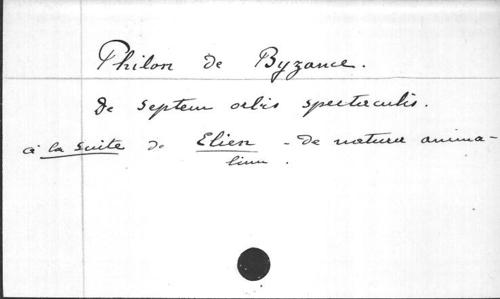 Philon de Byzance.
De septem orbis spectaculis.
à la suite de Elien - de natura anima-
lium.